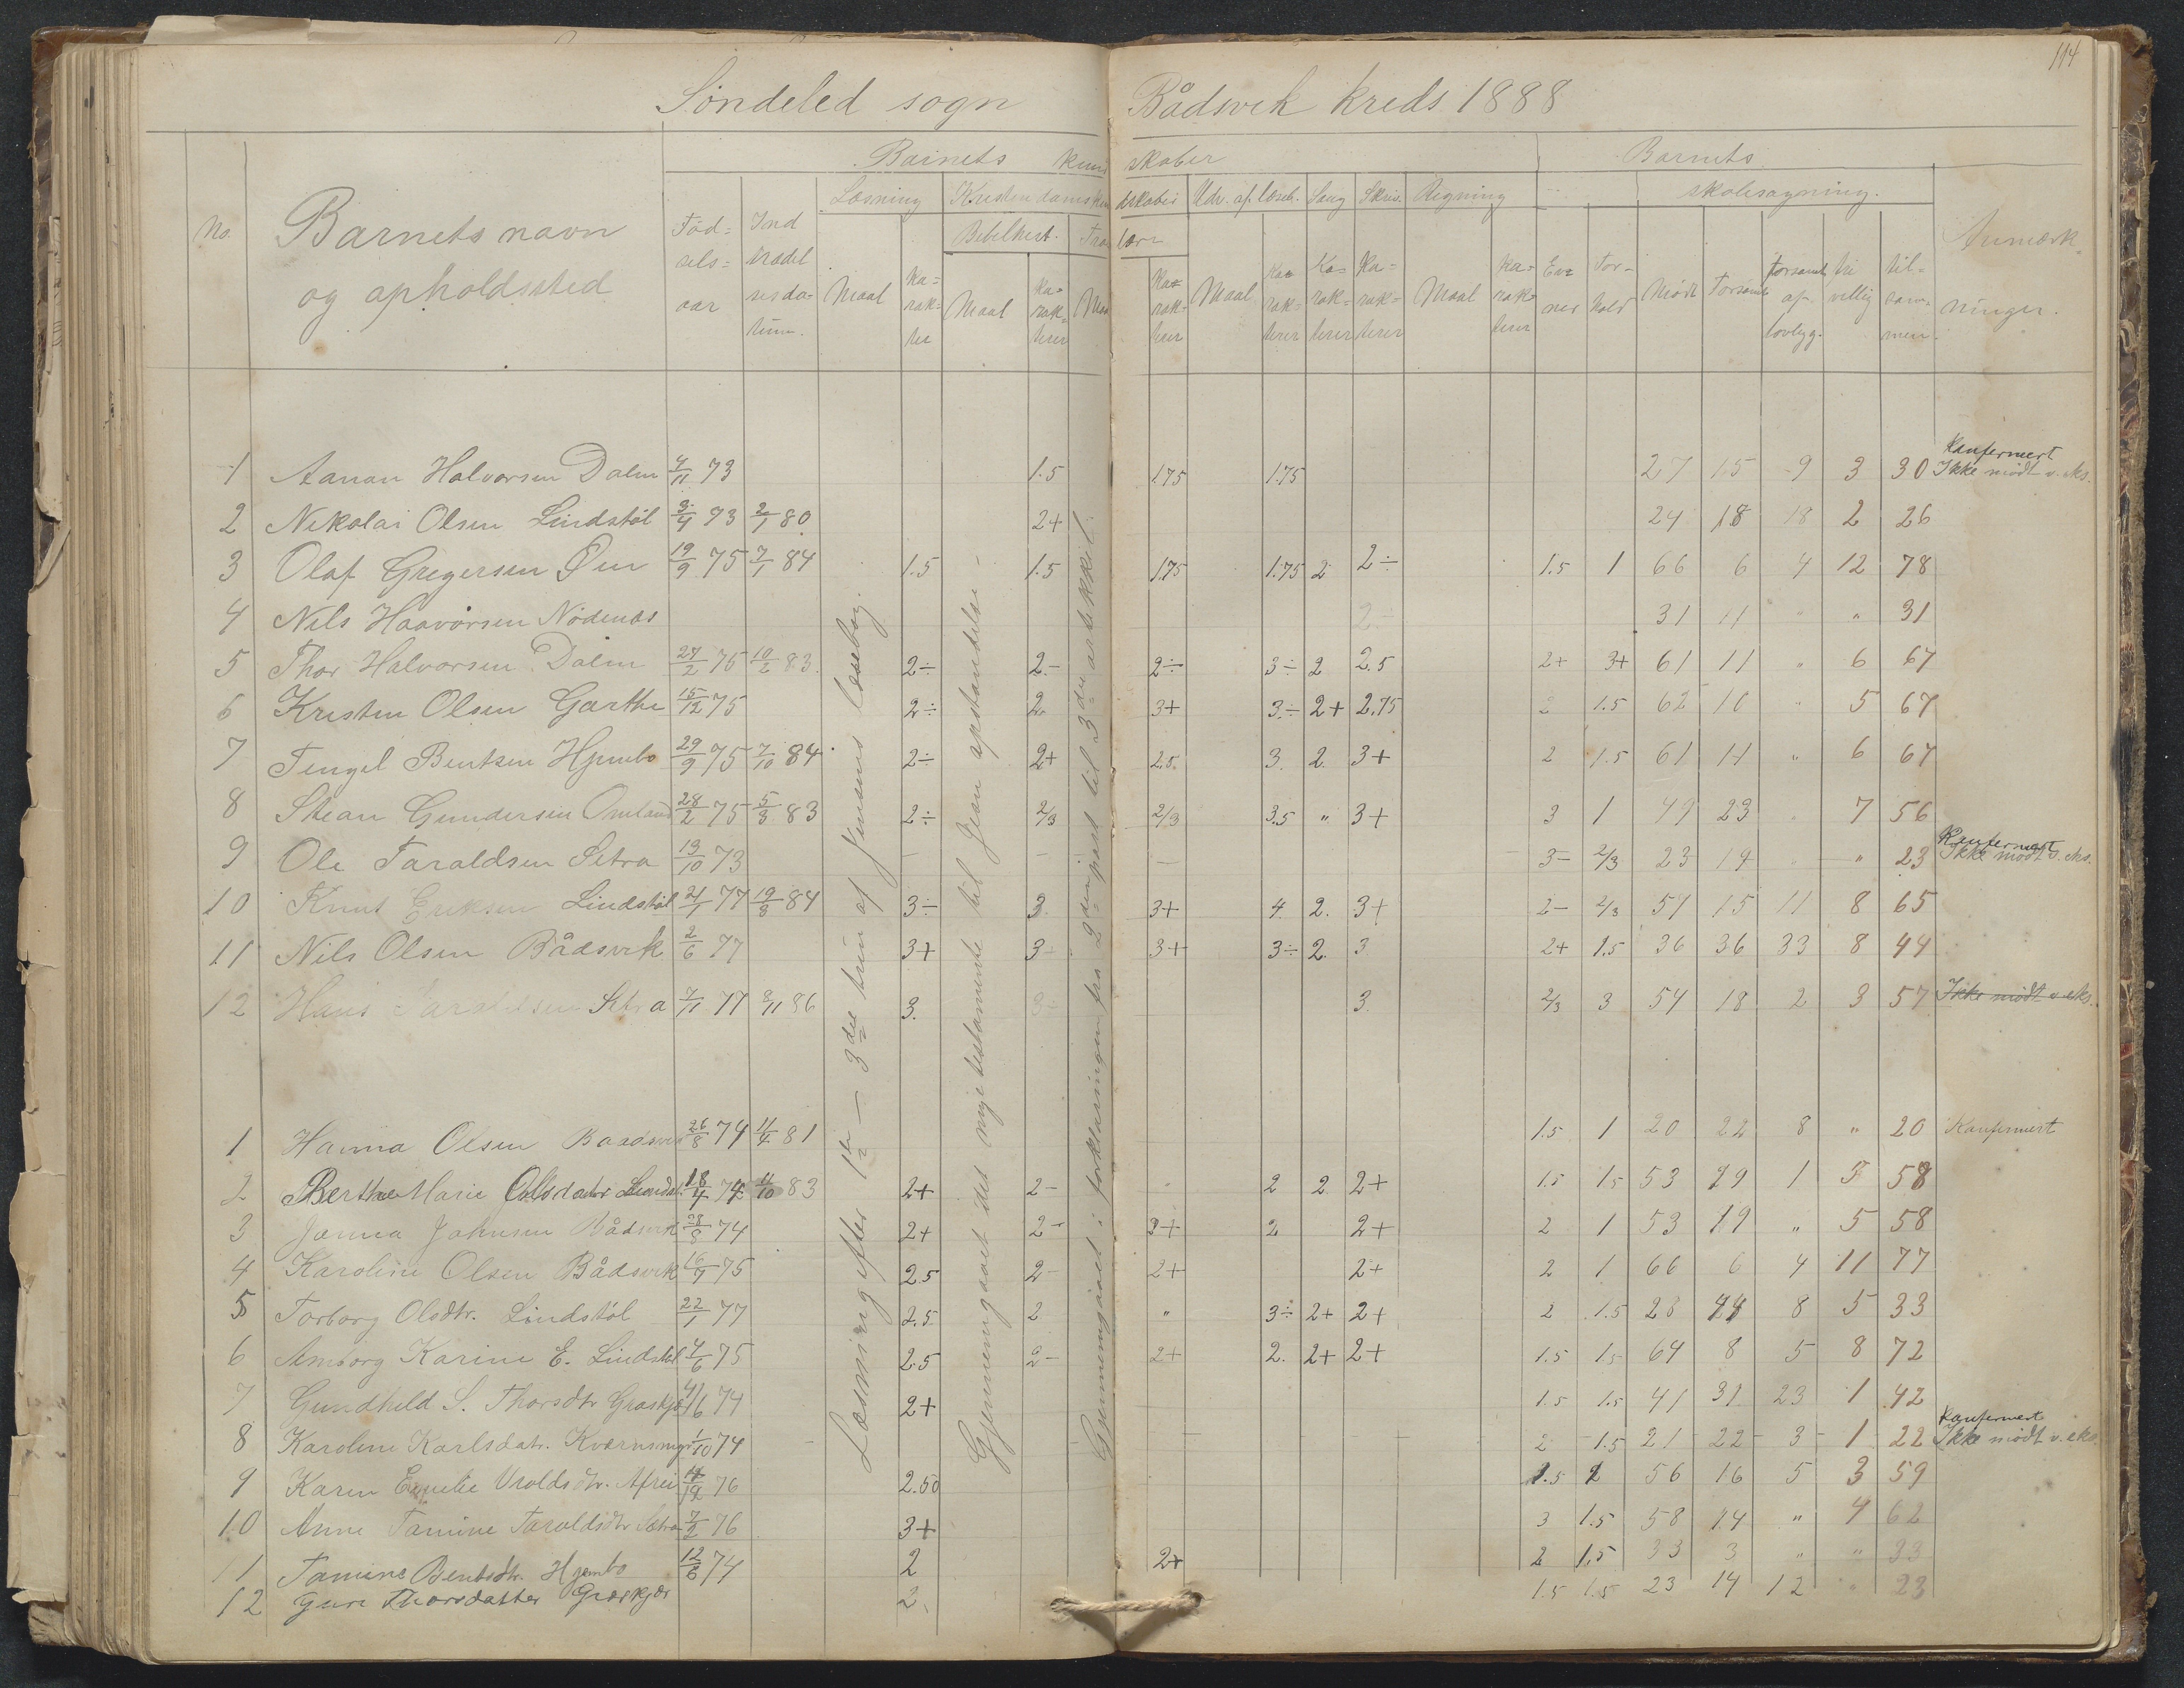 114
Söndeled sogn Bådsvik kreds 1888
Barnets kundskaber Barnets
Læsning Kristendomskundskaber Udv. af læseb. Sang Skriv. Regning skolesøgning.
No. Barnets navn og opholdssted Fød=sels=aar Indtrædelsesdatum. Bibelhist. Evner Forhold Mødt Forsømt forsømt af lovlyg. fri villig tilsammen. Anmærkninger.
Maal Karakter Maal Karakterer Karakterer Maal Karakterer Karakterer Karakterer Maal Karakterer
1 Aanon Halvorsen Dalen 4/11 73 1.5 1.75 1.75 27 15 9 3 30 Konfermert Ikke mødt v. eks.
2 Nikolai Olsen Lindstöl 3/4 73 2/1 80 2+ 24 18 18 2 26
3 Olaf Gregersen Øen 19/9 75 7/1 84 1.5 1.5 1.75 1.75 2 2÷ 1.5 1 66 6 4 12 78
4 Nils Haavorsen Nødenæs 2- 31 11 " " 31
5 Thor Halvorsen Dalen 27/2 75 10/2 83 2÷ 2- 2÷ 3÷ 2 2.5 2+ 3+ 61 11 " 6 67
6 Kristen Olsen Garthe 15/12 75 2÷ 2. 3+ 3÷ 2+ 2.75 2 1.5 62 10 " 5 67
7 Tengel Bentsen Hjembo 29/9 75 7/10 84 2÷ 2+ 2.5 3. 2. 3+ 2 1.5 61 11 " 6 67
8 Stean Gundersen Omland 28/2 75 5/3 83 2÷ 2/3 2/3 3.5 " 3+ 3 1 49 23 " 7 56
9 Ole Taraldsen Sætra 13/10 73 – – – 3- 2/3 23 19 " " 23 Konfermert Ikke mødt v. eks.
10 Knut Eriksen Lindstöl 21/1 77 19/8 84 3÷ 3. 3+ 4 2. 3+ 2- 2/3 57 15 11 8 65
11 Nils Olsen Bådsvik 2/6 77 3+ 3- 3+ 3÷ 2. 3 2+ 1.5 36 36 33 8 44
12 Hans Taraldsen Setra 7/11 77 8/11 86 3. 3- 3. 2/3 3 54 18 2 3 57 Ikke mødt v. eks.
Læsning efter 1te – 3die trin af Jensens læsebog.
Gjennemgaaet det nye testamente til Jesu opstandelse.
Gjennemgaaet i forklaringen fra 2den part til 3die artikkel.
1 Hanna Olsen Baadsvik 26/8 74 11/4 81 1.5 1 20 22 8 " 20 Konfermert
2 Berthe Marie Olsdatter Lindst. 18/4 74 11/10 83 2+ 2- " 2 2 2+ 1.5 1.5 53 19 1 5 58
3 Janna Johnsen Bådsvik 28/8 74 2+ 2- 2+ 2 2+ 2 1 53 19 " 5 58
4 Karoline Olsen Bådsvik 16/7 75 2.5 2- 2+ 2+ 2 1 66 6 4 11 77
5 Torborg Olsdtr. Lindstöl 22/1 77 2.5 2 " 3÷ 2+ 2+ 2 1.5 28 44 8 5 33
6 Amborg Karine E. Lindstöl 4/6 75 2.5 2- 2+ 2. 2+ 2+ 1.5 1.5 64 8 5 8 72
7 Gundhild S. Thorsdtr Graskjær 4/6 74 2+ 1.5 1.5 41 31 23 1 42
8 Karoline Karlsdatr. Kværnmyr 1/10 74 2 1.5 21 22 3 1 22 Konfermert Ikke mødt v. eks.
9 Karen Emelie Uroldsdtr. 76 2.50 1.5 2 56 16 5 3 59
10 Anne Tamine Taraldsdtr Sætra 7/2 76 3+ 3 1.5 58 14 " 4 62
11 Tamine Bentsdtr. Hjembo 12/8 74 2 2+ 2 1.5 33 3 " " 33
12 Gure Thorsdatter Græskjær 2. 1.5 1.5 23 14 12 " 23